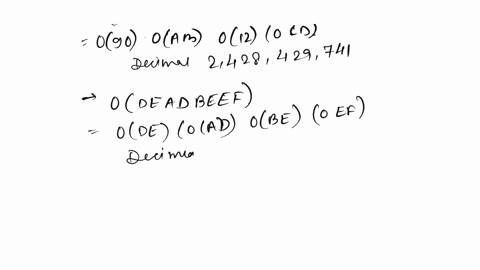 = O(90) O(AB) O(12) (O CD)
Decimal 2,428,429,741
→ O(DEADBEEF)
= O(DE) (O(AD) O(BE) (O EF)
Decima